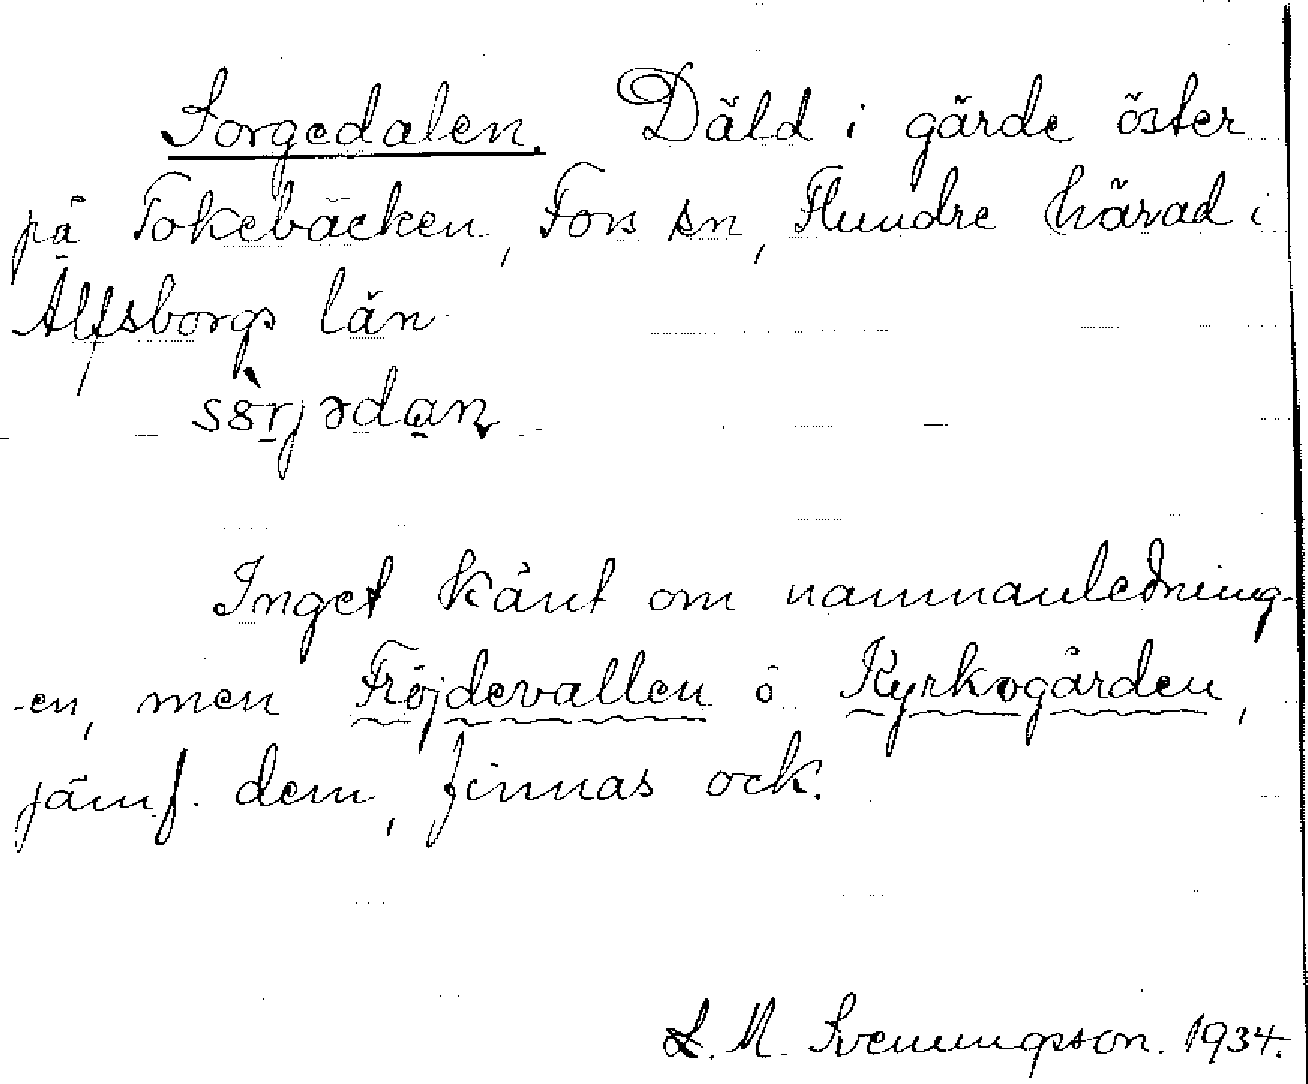 Sorgedalen. Däld i gärde öster
på Tokebäcken, Fors sn, Flundre härad i
Älfsborgs län
Inget känt om namnanledning-
en, men Fröjdevallen o Kyrkogården,
jämf. dem, finnas ock.
L. M. Svenungsson. 1934.